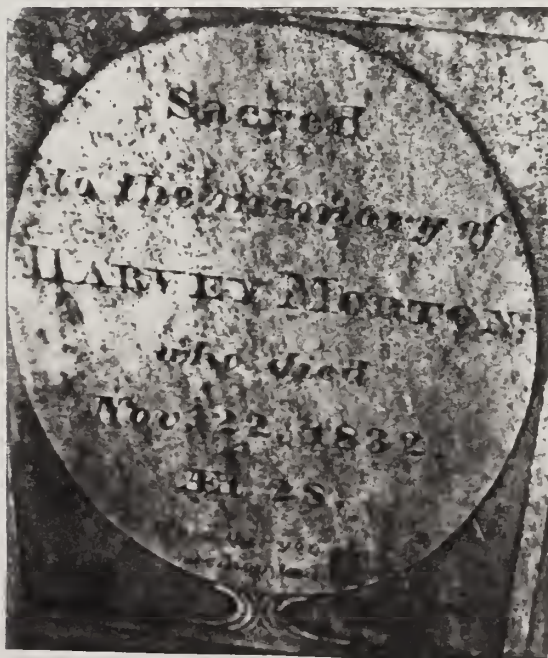 Sacred
to the memory of
HARVEY MORTON
who died
Nov. 22, 1832
Æt 28.